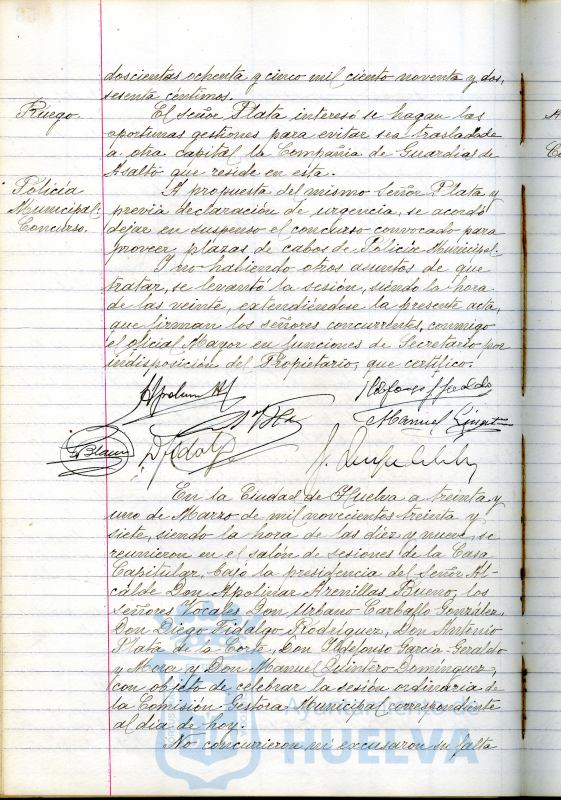 doscientas ochenta y cinco mil ciento noventa y dos,
sesenta céntimos.
Ruego.
El señor Plata interesó se hagan las
oportunas gestiones para evitar sea trasladada
a otra capital la Compañía de Guardias de
Asalto que reside en esta.
Policía
Municipal:
Concurso.
A propuesta del mismo Señor Plata y
previa declaración de urgencia, se acordó
dejar en suspenso el concurso convocado para
proveer plazas de cabos de Policía Municipal.
Y no habiendo otros asuntos de que
tratar, se levantó la sesión, siendo la hora
de las veinte, extendiéndose la presente acta,
que firman los señores concurrentes, conmigo
el oficial Mayor en funciones de Secretario por
indisposición del Propietario, que certifico.
Manuel
En la Ciudad de Huelva a treinta y
uno de Marzo de mil novecientos treinta y
siete, siendo la hora de las diez y nueve, se
reunieron en el salón de sesiones de la Casa
Capitular, bajo la presidencia del Señor Al-
calde Don Apolinar Arenillas Bueno, los
señores Vocales Don Urbano Carballo González,
Don Diego Fidalgo Rodríguez, Don Antonio
Plata de la Corte, Don Ildefonso García Geraldo
y Mora y Don Manuel Quintero Domínguez,
con objeto de celebrar la sesión ordinaria de
la Comisión Gestora Municipal correspondiente
al día de hoy.
No concurrieron ni excusaron su falta
HUELVA